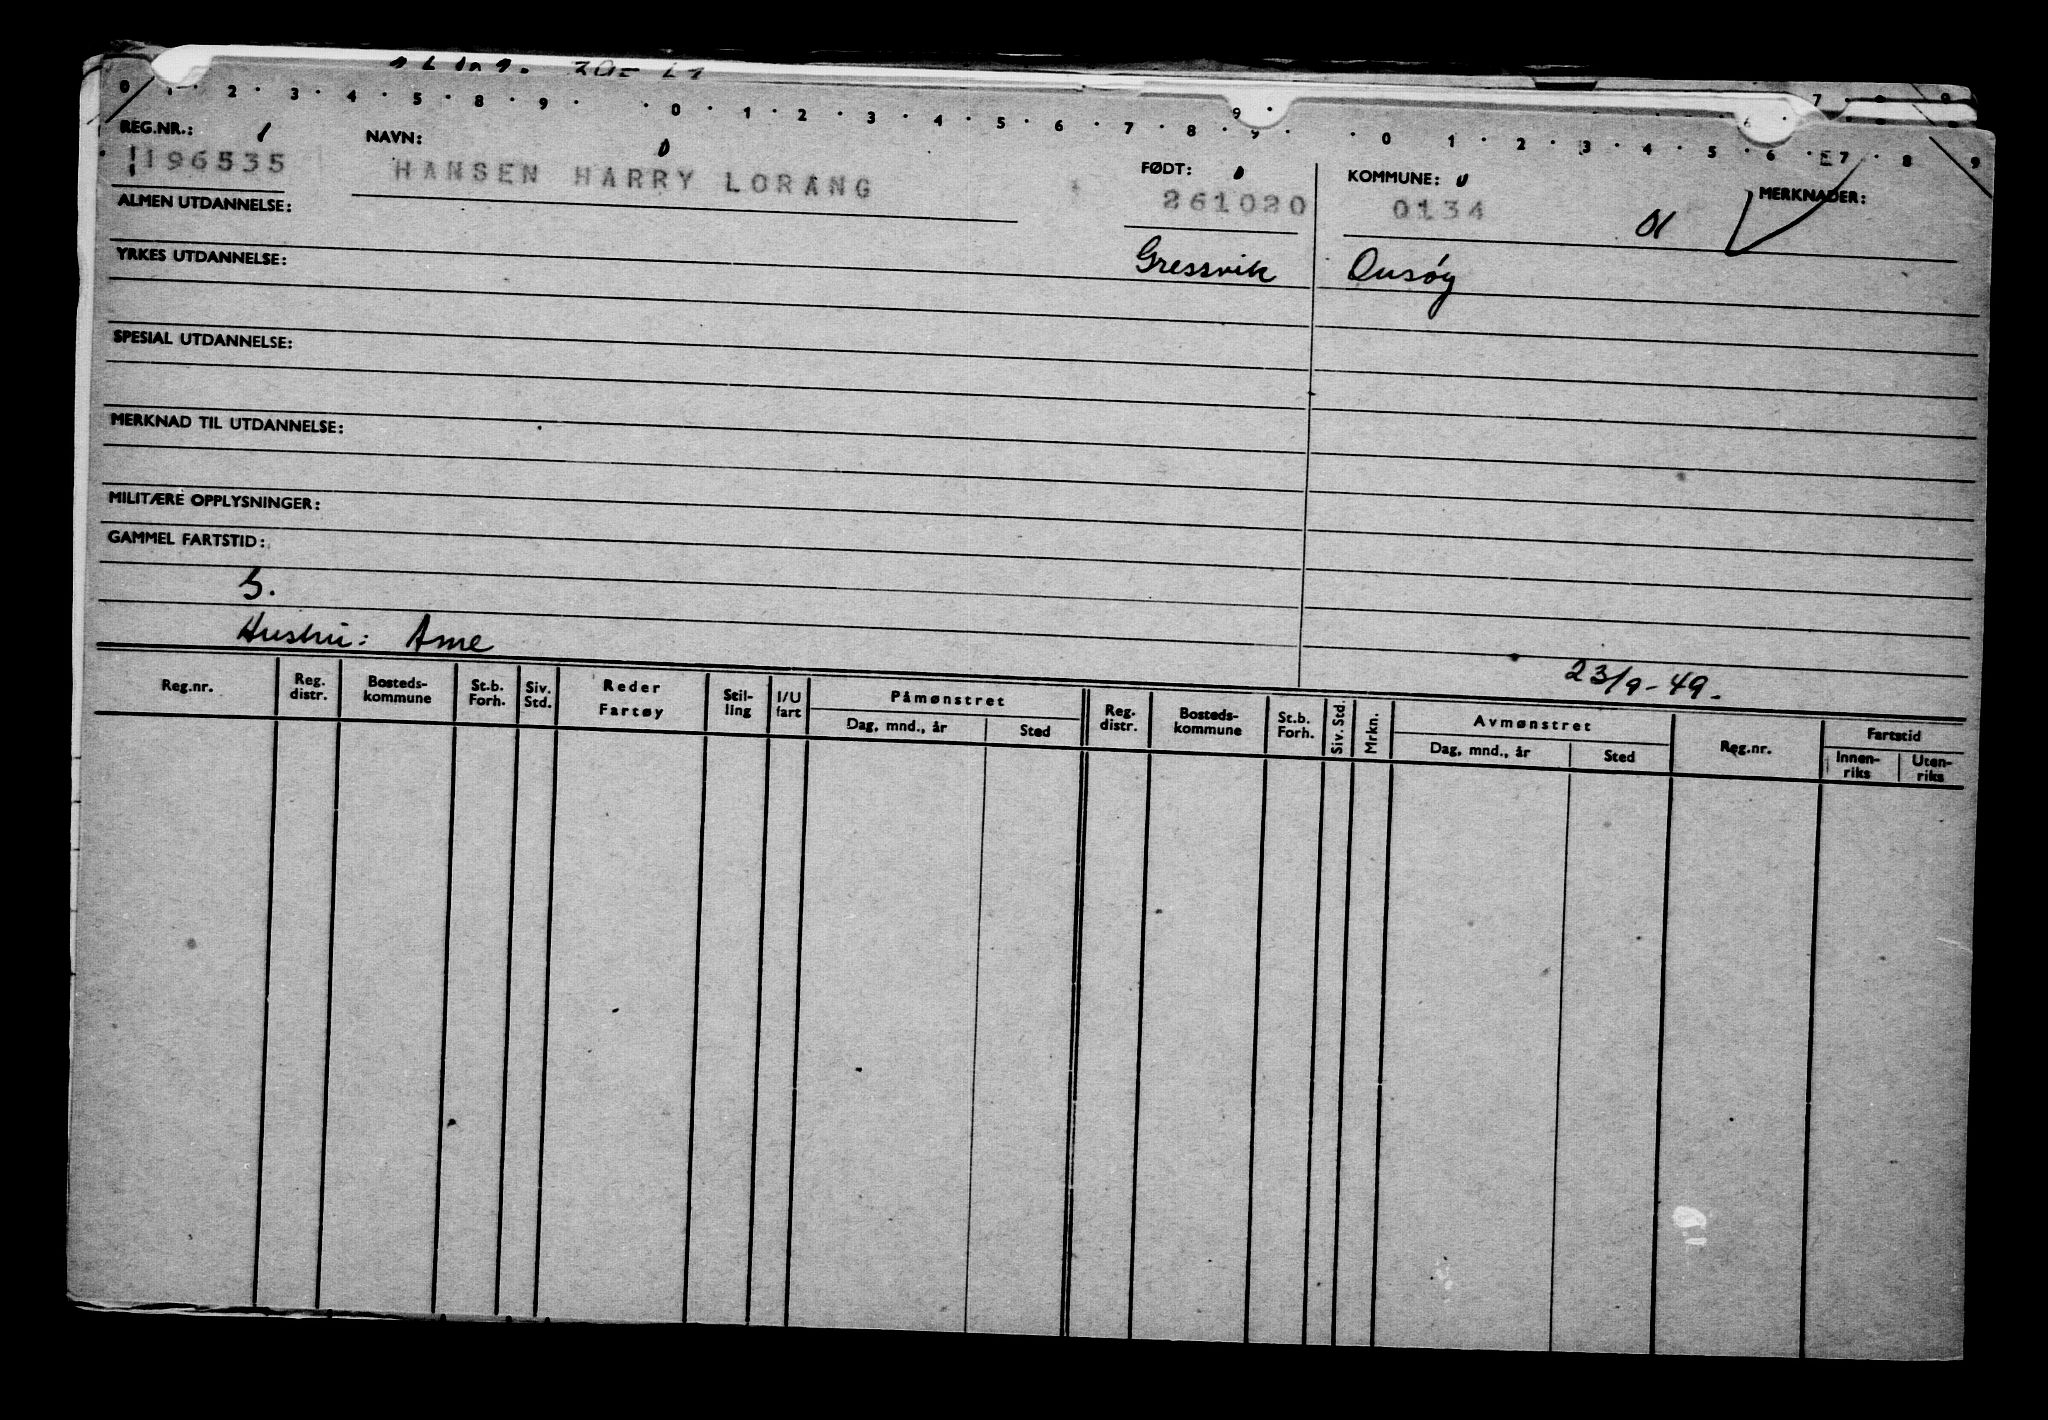 0 1 · 2 · 3 · 4 · 5 · 8 · 9 · · 0 · 1 · 2 · 3 · 4 · 5 · 6 · 7 · 8 · 9 · · 0 · 1 · 2 · 3 · 4 · 5 · 6 · 7 · 8 · 9
REG.NR.: NAVN: FØDT: KOMMUNE: MERKNADER:
196535 HANSEN HARRY LORANG 261020 0134
ALMEN UTDANNELSE:
Gressvik Onsøy
YRKES UTDANNELSE:
SPESIAL UTDANNELSE:
MERKNAD TIL UTDANNELSE:
MILITÆRE OPPLYSNINGER:
GAMMEL FARTSTID:
S.
Hustru: Arne
23/9-49.
Reg.nr. Reg. distr. Bosteds-kommune St.b. Forh. Siv. Std. Reder Fartøy Stil-ling I/U fart Påmønstret Dag, mnd., år Sted Reg. distr. Bosteds-kommune St.b. Forh. Siv. Std. Mrkn. Avmønstret Dag, mnd., år Sted Reg.nr. Fartstid Innen-riks Uten-riks